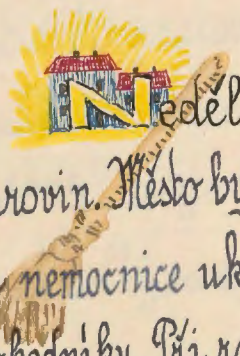 Neděl
rovin. Město by
nemocnice uk